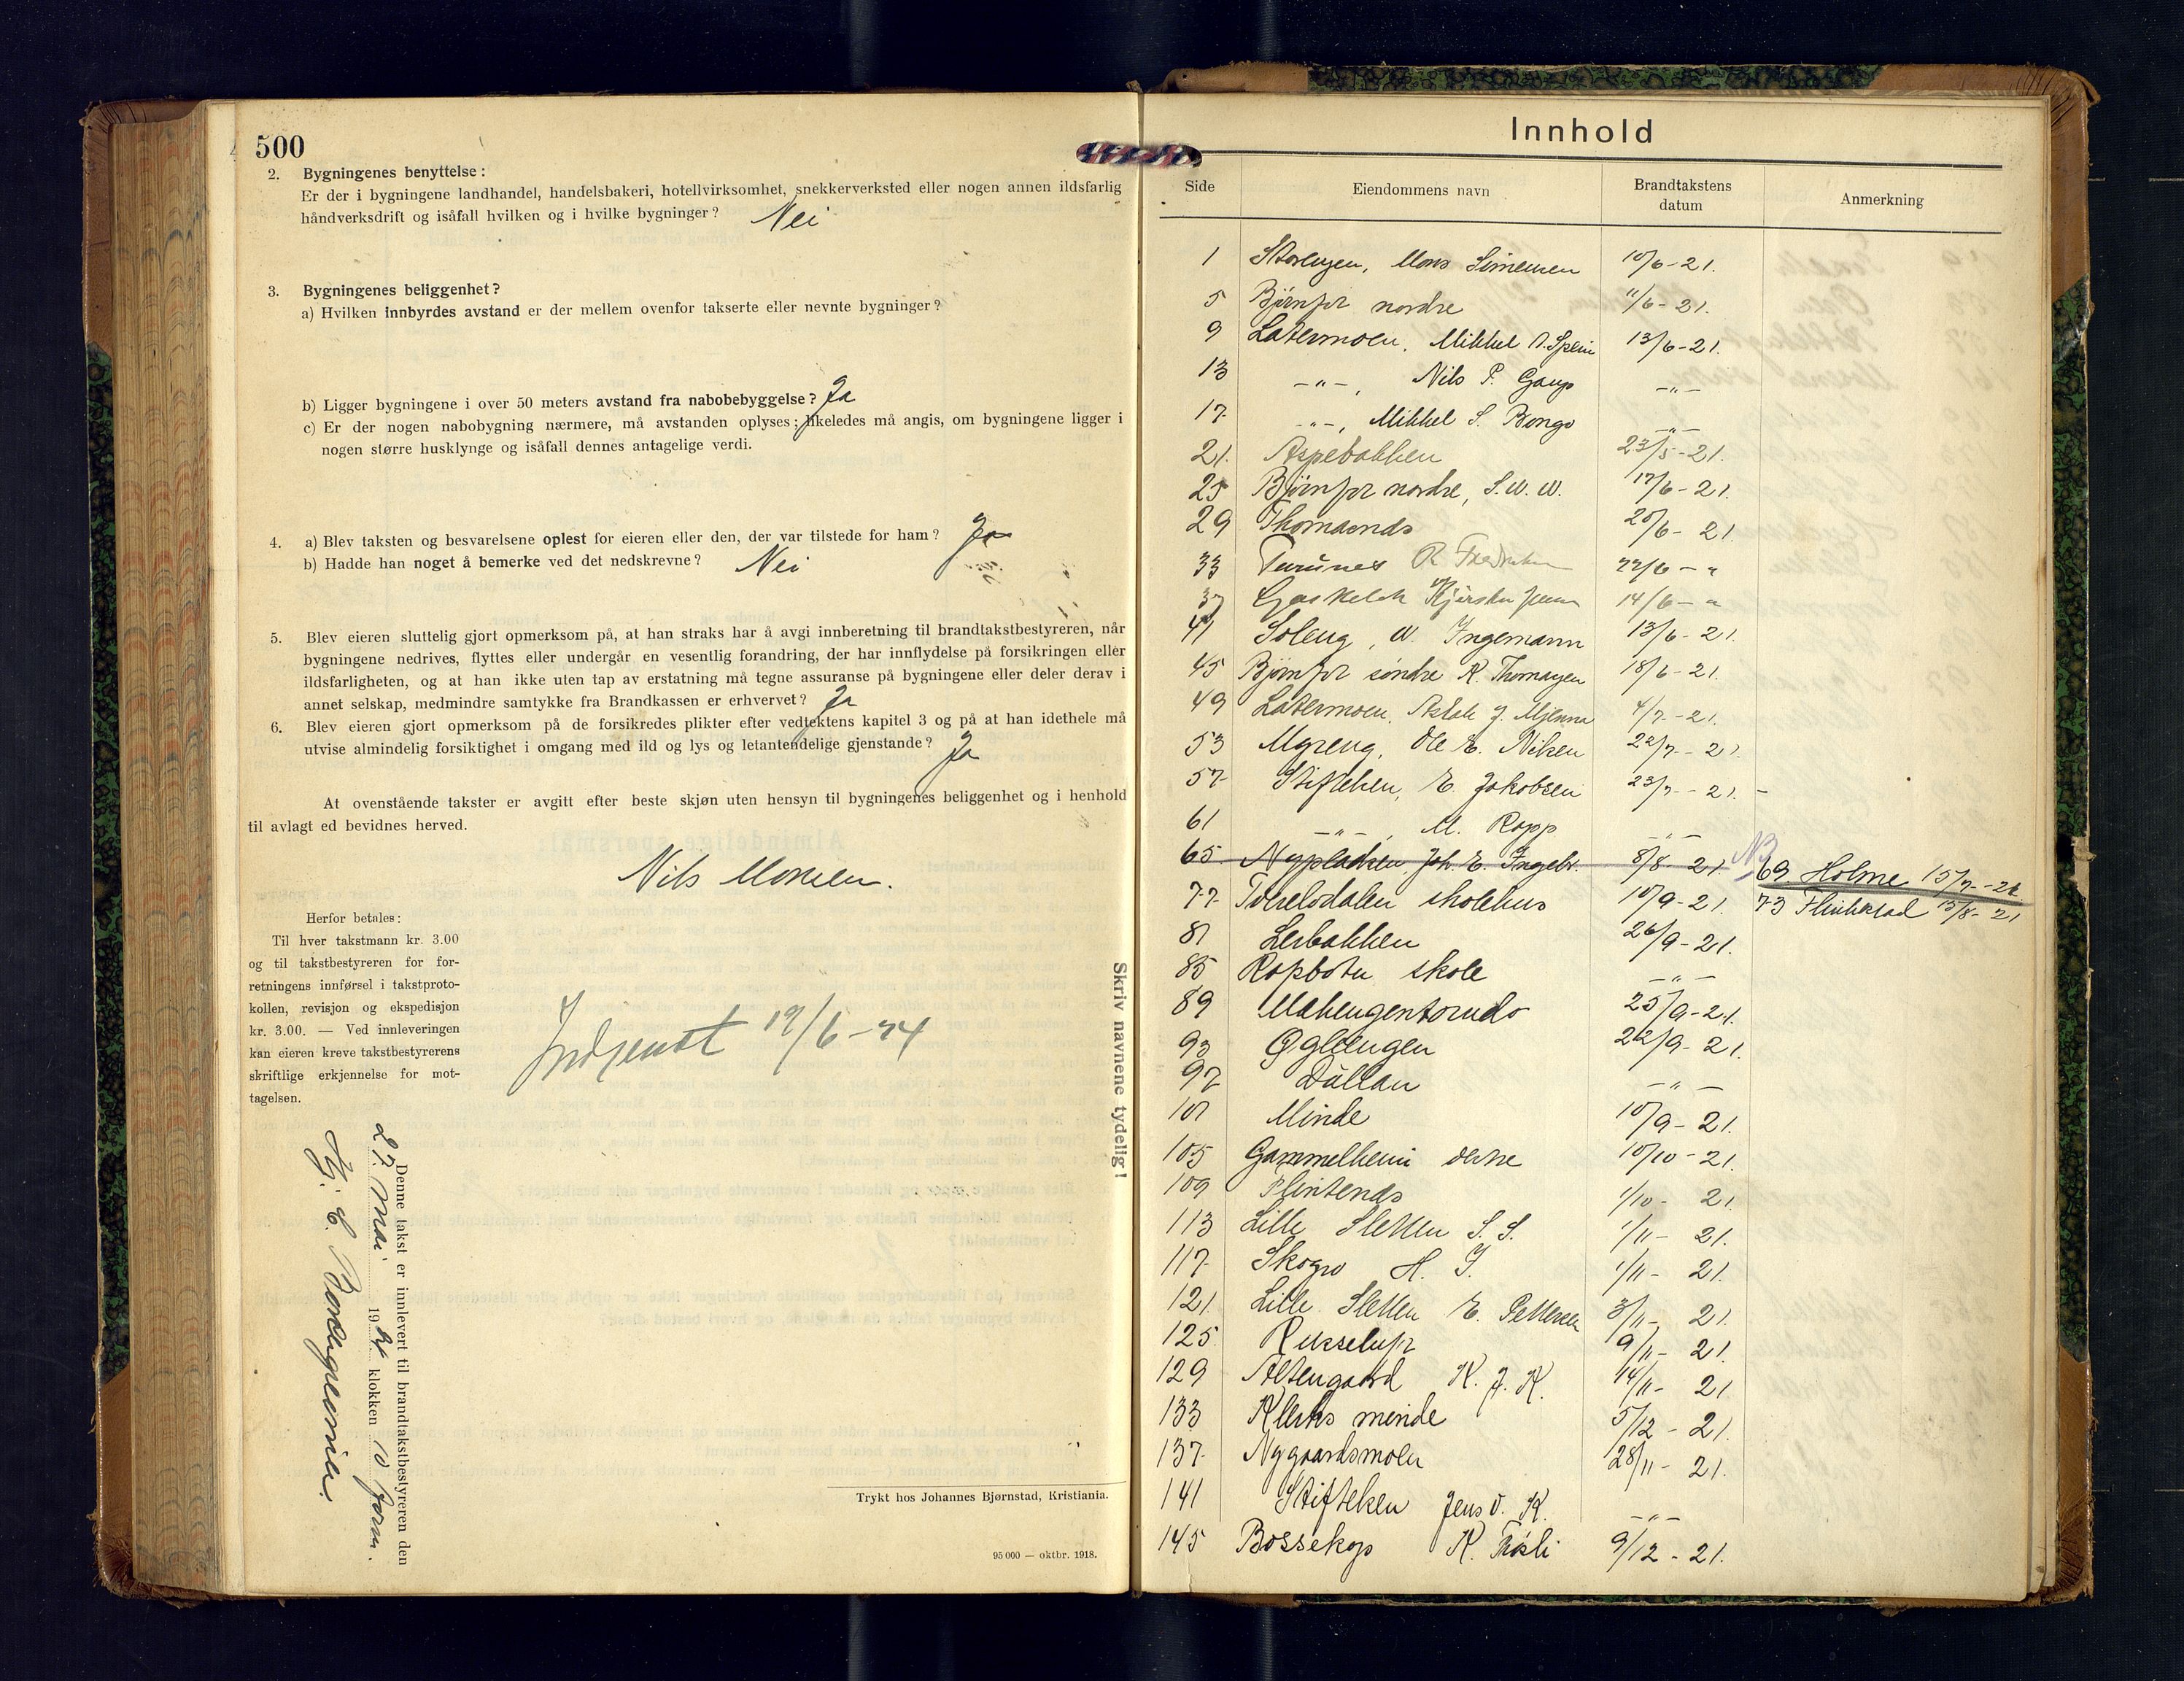 500
2. Bygningenes benyttelse:
Er der i bygningene landhandel, handelsbakeri, hotellvirksomhet, snekkerverksted eller nogen annen ildsfarlig
håndverksdrift og isåfall hvilken og i hvilke bygninger? Nei
3. Bygningenes beliggenhet?
a) Hvilken innbyrdes avstand er der mellem ovenfor takserte eller nevnte bygninger?
b) Ligger bygningene i over 50 meters avstand fra nabobebyggelse? Ja
c) Er der nogen nabobygning nærmere, må avstanden oplyses; likeledes må angis, om bygningene ligger i
nogen større husklynge og isåfall dennes antagelige verdi.
4. a) Blev taksten og besvarelsene oplest for eieren eller den, der var tilstede for ham? Ja
b) Hadde han noget å bemerke ved det nedskrevne? Nei
5. Blev eieren sluttelig gjort opmerksom på, at han straks har å avgi innberetning til brandtakstbestyreren, når
bygningene nedrives, flyttes eller undergår en vesentlig forandring, der har innflydelse på forsikringen eller
ildsfarligheten, og at han ikke uten tap av erstatning må tegne assuranse på bygningene eller deler derav i
annet selskap, medmindre samtykke fra Brandkassen er erhvervet? Ja
6. Blev eieren gjort opmerksom på de forsikredes plikter efter vedtektens kapitel 3 og på at han idethele må
utvise almindelig forsiktighet i omgang med ild og lys og letantendelige gjenstande? Ja
At ovenstående takster er avgitt efter beste skjøn uten hensyn til bygningenes beliggenhet og i henhold
til avlagt ed bevidnes herved.
Nils Monsen.
Herfor betales:
Til hver takstmann kr. 3.00
og til takstbestyreren for for-
retningens innførsel i takstproto-
kollen, revisjon og ekspedisjon
kr. 3.00. — Ved innleveringen
kan eieren kreve takstbestyrerens
skriftlige erkjennelse for mot-
tagelsen.
19/6-24
Denne takst er innlevert til brandtakstbestyreren den
27. mai 1924 klokken 10 form.
Skriv navnene tydelig!
Trykt hos Johannes Bjørnstad, Kristiania.
95 000 — oktbr. 1918.
Innhold
Side Eiendommens navn Brandtakstens datum Anmerkning
1 Storengen, Mons Simensen 10/6-21.
5 Bjørnfor nordre 11/6-21.
9 Latermoen, Mikkel 13/6-21.
13 -"-, Nils P. Gaup -"-
17 -"-, Mikkel S. Bongo -"-
21. Aspebakken 23/5-21.
25 Bjørnfor nordre, 17/6-21.
29 Thomasnds 20/6-21.
33 22/6-"
37 14/6-"
41 Soleng, Ingemann 13/6-21.
45 Bjørnfor søndre K. Thomassen 18/6-21.
49 Latermoen, Aslak J. 4/7-21.
53 Ole E. Nilsen 22/7-21.
57 Stifteken, E. Jakobsen 23/7-21.
61 -"-, M. Rapp -"-
65 Nypladsen, Joh. E. Ingebr. 8/8-21. NB 69 Holme 15/7-21
77 Tverelvdalen skolehus 10/9-21. 73 Flintestad 15/8-21
81 Lerbakken 26/9-21.
85 Rapbotn skole -"-
89 25/9-21.
93 Øglengen 22/9-21.
97 -"-
101 Minde 10/9-21.
105 Gammelheim 10/10-21.
109 Flintends 1/10-21.
113 Lille Sletten S. S. 1/11-21.
117 Skogro H. I. 1/11-21.
121 Lille Sletten E. Pettersen 3/11-21.
125 Russelufr 9/11-21.
129 Altengaard K. J. K. 14/11-21
133 Klerks minde 5/12-21.
137 Nygaardsmoen 28/11-21.
141 Stifteken Jens O. K. -"-
145 Bossekop K. 9/12-21.